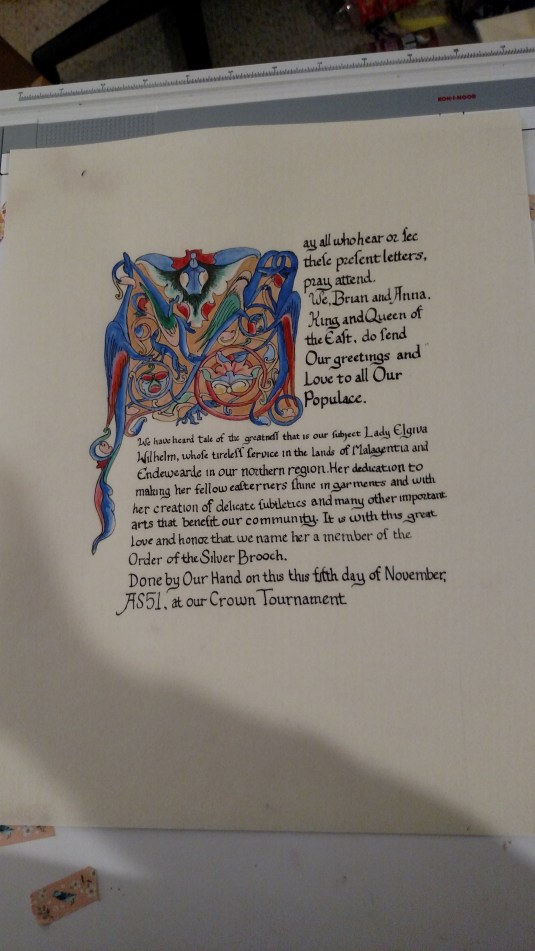 KOH-I-NOOR
May all who hear or ſee
theſe preſent letters,
pray attend.
We, Brian and Anna,
King and Queen of
the Eaſt, do ſend
Our greetings and
Love to all Our
Populace.
We have heard tale of the greatneſſ that is our ſubject Lady Elgiva
Wilhelm, whoſe tireleſſ ſervice in the lands of Malagentia and
Endewearde in our northern region. Her dedication to
making her fellow eaſterners ſhine in garments and with
her creation of delicate ſubtleties and many other important
arts that benefit our community. It is with this great
love and honor that we name her a member of the
Order of the Silver Brooch.
Done by Our Hand on this this fifth day of November,
AS51, at our Crown Tournament